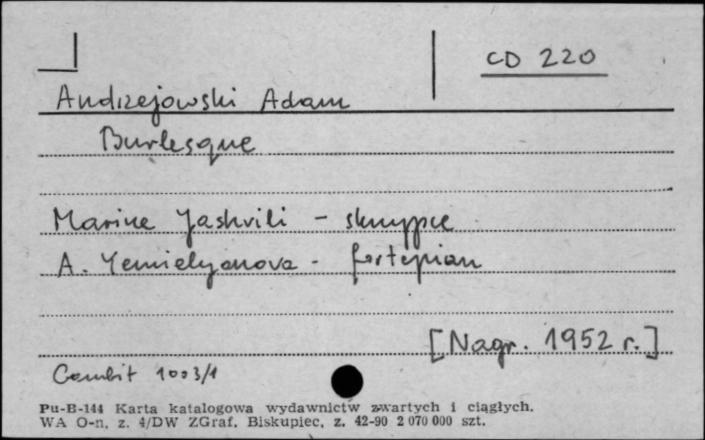 CD 220
Andrzejowski Adam
Burlesque
Marine Jashvili - skrzypce
A. Yemielyanova - fortepian
[Nagr. 1952 r.]
Cambit 1003/1
Pu-B-144 Karta katalogowa wydawnictw zwartych i ciągłych.
WA O-n, z. 4/DW ZGraf. Biskupiec, z. 42-90 2 070 000 szt.